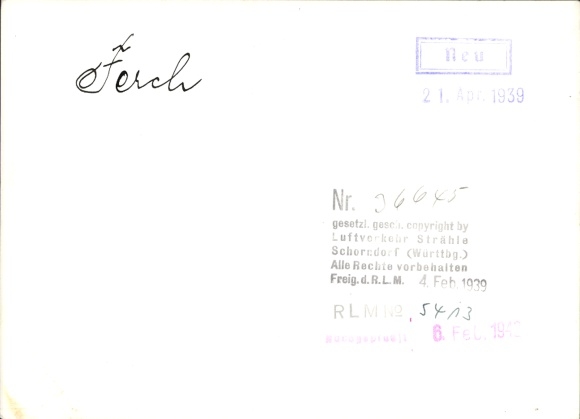 Ferch
Neu
21. Apr. 1939
Nr. 26645
gesetzl. gesch. copyright by
Luftverkehr Strähle
Schorndorf (Württbg.)
Alle Rechte vorbehalten
Freig. d. R.L.M. 4. Feb. 1939
RLM No. 5413
6. Feb. 1942